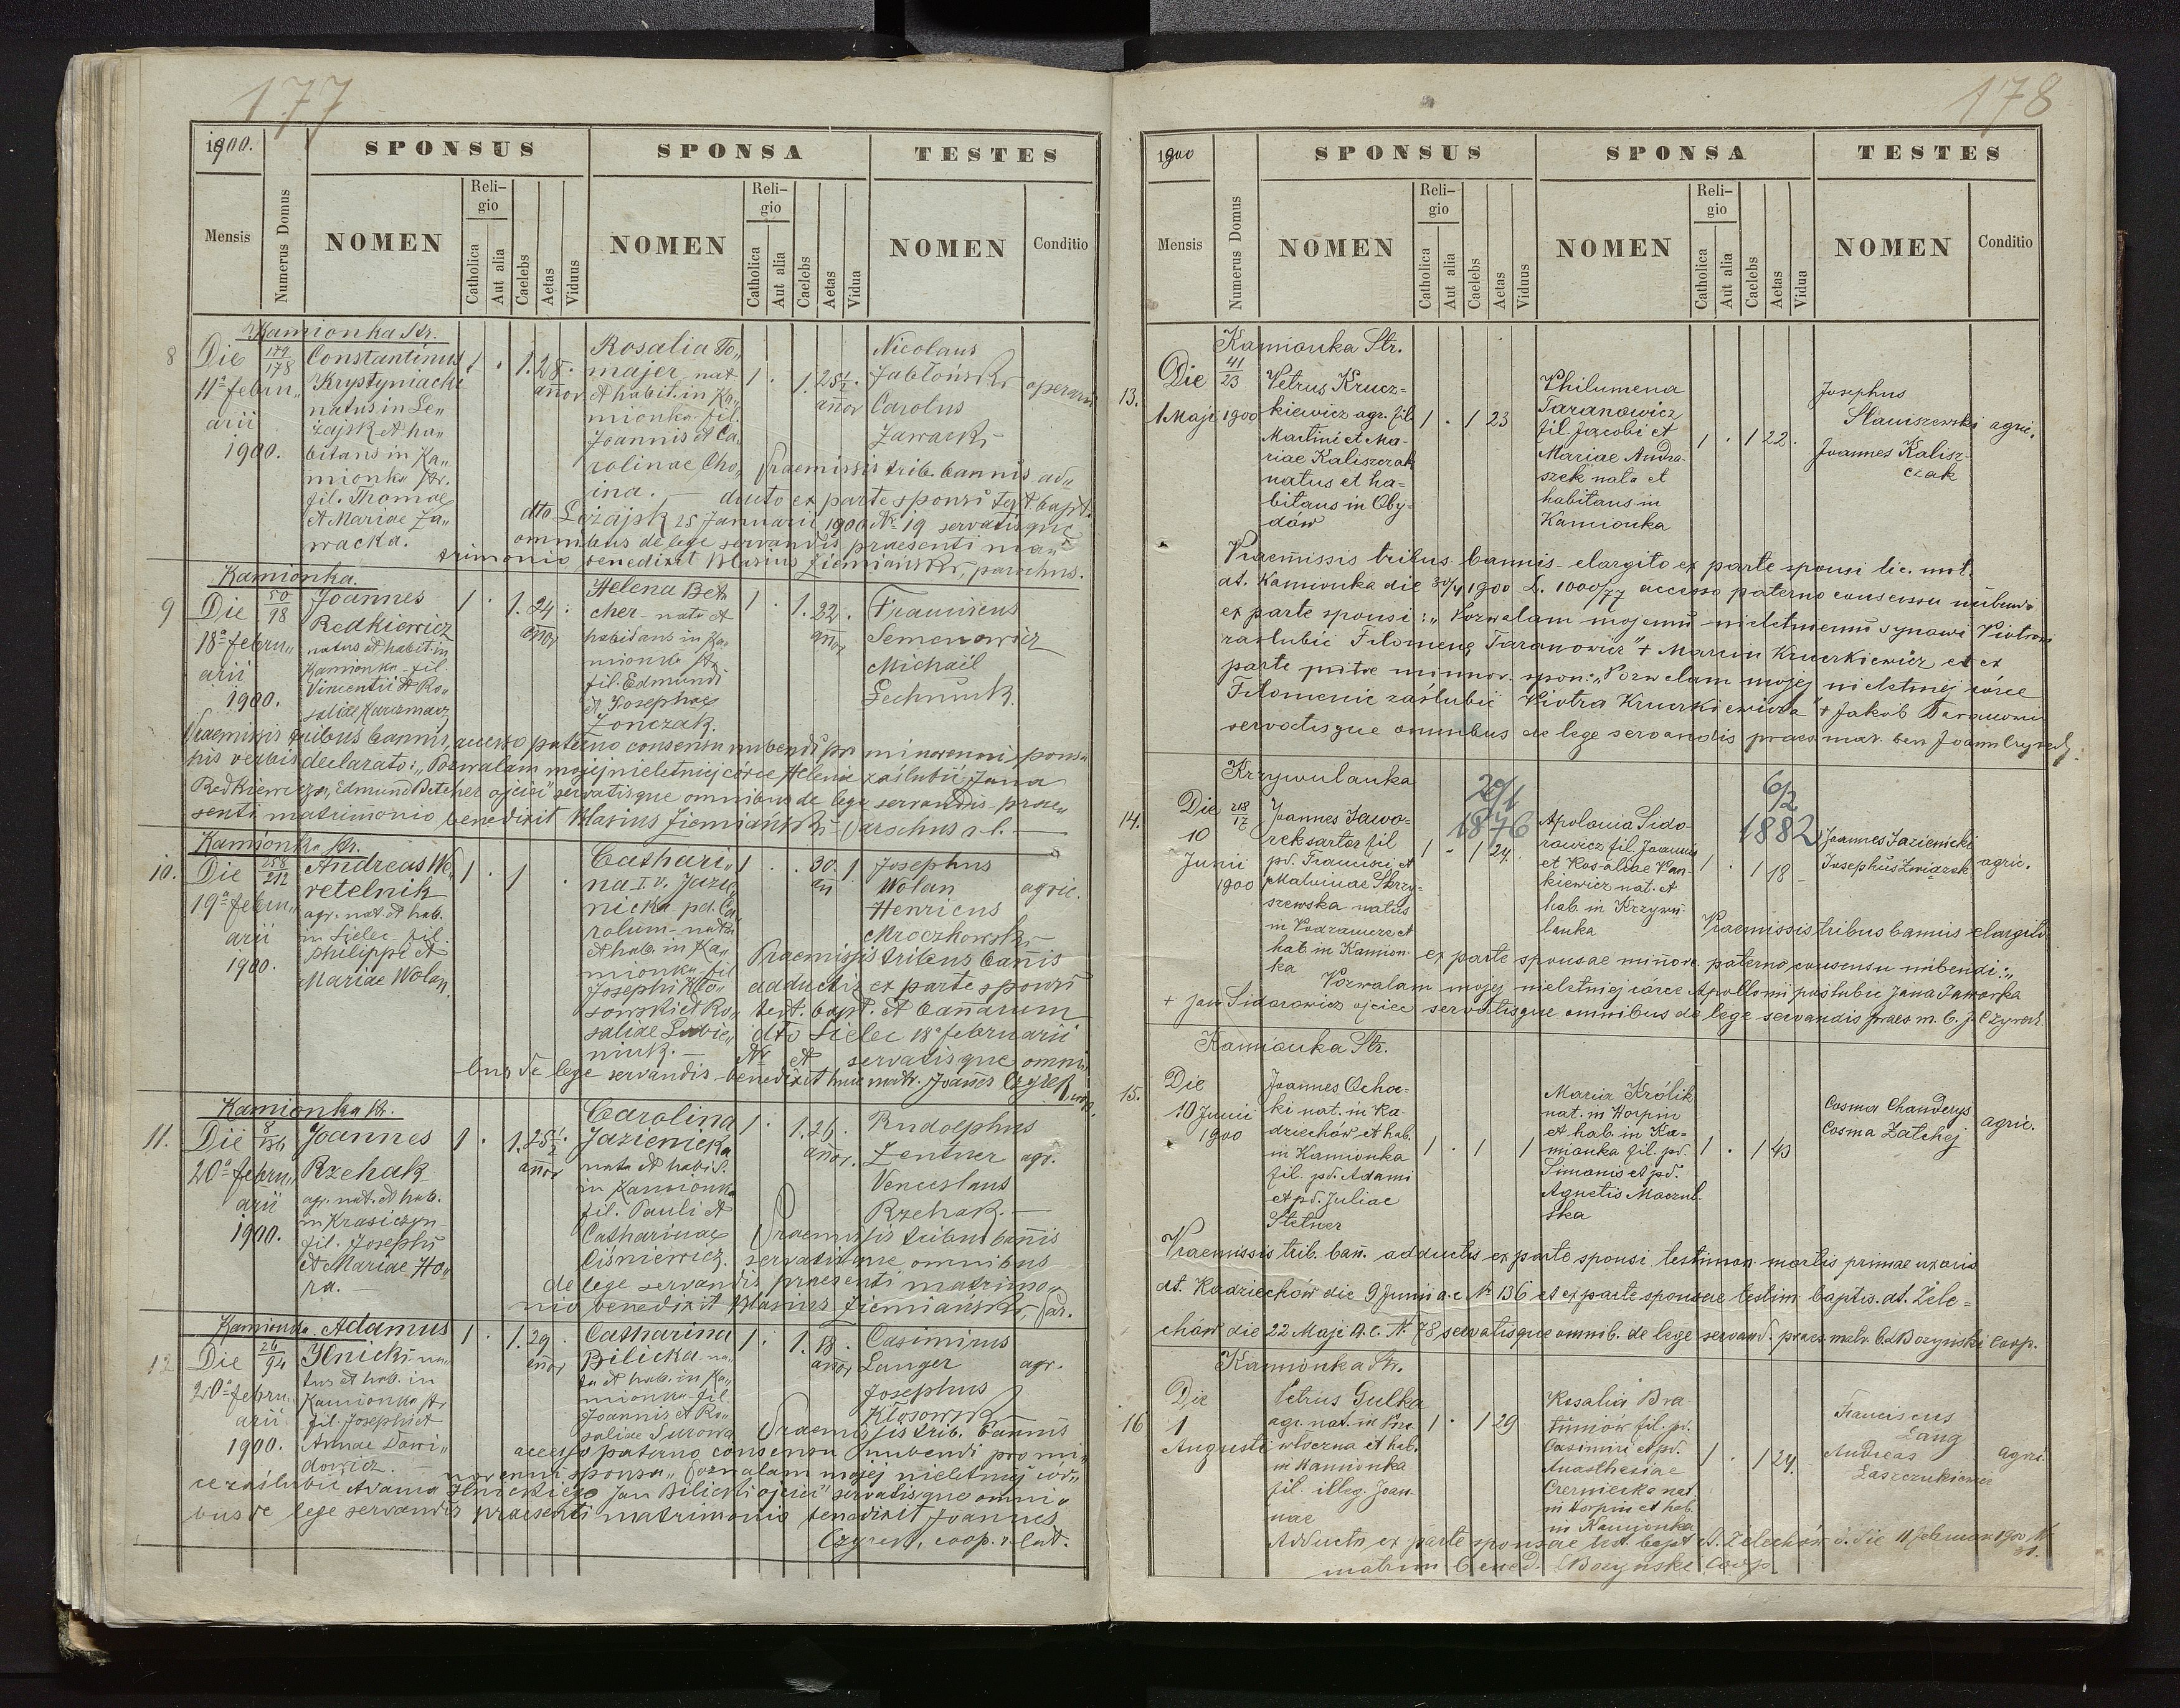 177
1900.
SPONSUS
SPONSA
TESTES
Mensis
Numerus Domus
NOMEN
Religio
Catholica
Aut alia
Caelebs
Aetas
Viduus
NOMEN
Religio
Catholica
Aut alia
Caelebs
Aetas
Vidua
NOMEN
Conditio
Kamionka Str.
8
Die
11ª febru„
arii
1900.
179
178
Constantinus
Krystyniacki
natus in Le„
żajsk et ha„
bitans in Ka„
mionka Str.
fil. Thomae
et Mariae Za„
wacka.
1 . 1. 28.
añor
Rosalia To„
majer nat
et habit. in Ka„
mionka fil.
Joannis et Ca„
rolinae Cho„
ina. —
1 . 1. 25½.
añor
Nicolaus
Jabłoński
Carolus
Zawacki
operarii
Praemissis trib. bannis ad„
ducto ex parte sponsi test. bapt.
dto Leżajsk 25 Januarii 1900 Nr 19 servatisque
omnibus de lege servandis praesenti ma„
trimonio benedixit Blasius Ziemiański, parochus.
Kamionka.
9
Die
18ª febru„
arii
1900.
50
98
Joannes
Redkiewicz
natus et habit. in
Kamionka fil.
Vincentii et Ro„
saliae Karczmarz
1 . 1. 24.
añor
Helena Bet
cher nata et
habitans in Ka„
mionka Str.
fil. Edmundi
et Josephae
Zonczak.
1 . 1. 22.
añor
Franciscus
Semenowicz
Michail
Lechniuk.
Praemissis tribus bannis, accesso paterno consensu nubendi pro minorenni sponsa
his verbis declarato: „Pozwalam mojej nieletniej córce Helenie zaślubić Jana
Redkiewicza, Edmund Betcher ojciec" servatisque omnibus de lege servandis prae„
senti matrimonio benedixit Blasius Ziemiański Parochus r. l. —
Kamionka Str.
10.
Die
19ª febru„
arii
1900.
258
212
Andreas We„
retelnik
agr. nat. et hab.
in Sielec fil.
Philippi et
Mariae Wolan.
1 . 1 .
Cathari„
na I. v. Jazie
nicka pd. Ca„
rolum nata
et hab. in Ka„
mionka fil
Josephi Kło„
sowski et Ro„
saliae Ludwie„
niuk. —
1 . . 30. 1
añ
Josephus
Wolan
Henricus
Mroczkowski
agric.
Praemissis tribus bañis
adductis ex parte sponsi
test. bapt. et bañarum
dto Sielec 18ª februarii
Nr et servatisque omni„
bus de lege servandis benedixit huic matr. Joannes Czyrek, coop.
Kamionka Str.
11.
Die
20ª febru„
arii
1900.
Joannes
Rzehak
agr. nat. et hab.
in Krasiczyn
fil. Josephi
et Mariae Ho„
ra. —
1 . 1. 25½.
añor
Carolina
Jazienicka
nata et habit.
in Kamionka
fil. Pauli et
Catharinae
Ciśniewicz.
1 . 1. 26.
añor.
Rudolphus
Zentner
Venceslaus
Rzehak. —
agr.
Praemissis tribus bañis
servatisque omnibus
de lege servandis praesenti matrimo„
nio benedixit Blasius Ziemiański, Par.
Kamionka.
12
Die
20ª febru„
arii
1900.
26
94
Adamus
Ilnicki na„
tus et hab. in
Kamionka Str
fil. Josephi et
Annae Dawi„
dowicz. —
1 . 1. 29.
añor
Catharina
Bilicka na„
ta et hab. in Ka„
mionka fil.
Joannis et Ro„
saliae Surowa
1 . 1. 18.
añor
Casimirus
Langer
Josephus
Kłosowski
agr.
Praemissis trib. bannis
accesso paterno consensu nubendi pro mi„
norenni sponsa „Pozwalam mojej nieletniej cór„
ce zaślubić Adama Ilnickiego Jan Bilicki ojciec" servatisque omni„
bus de lege servandis praesenti matrimonio benedixit Joannes
Czyrek, coop. r. lat.
178
1900
SPONSUS
SPONSA
TESTES
Mensis
Numerus Domus
NOMEN
Religio
Catholica
Aut alia
Caelebs
Aetas
Viduus
NOMEN
Religio
Catholica
Aut alia
Caelebs
Aetas
Vidua
NOMEN
Conditio
Kamionka Str.
13.
Die
1 Maji 1900
41
23
Petrus Krucz=
kiewicz agr. fil
Martini et Ma-
riae Kaliszczak
natus et ha-
bitans in Oby-
dów
1 . 1 23
Philumena
Taranowicz
fil. Jacobi et
Mariae Andra-
szek nata et
habitans in
Kamionka
1 . 1 22.
Josephus
Staniszewski
Joannes Kalisz-
czak
agric.
Praemissis tribus bannis elargito ex parte sponsi lic. not.
dt. Kamionka die 30/4 1900 L. 1000/77 accesso paterno consensu nubendi
ex parte sponsi: „Pozwalam mojemu nieletniemu synowi Piotrowi
zaślubić Filomenę Taranowicz" + Marcin Kruczkiewicz et ex
parte minor. spon: „Pozwalam mojej nieletniej córce
Filomenie zaślubić Piotra Kruczkiewicza" + Jakób Taranowicz
servatisque omnibus de lege servandis praes. mar. ben Joann Czyrek.
Krzywulanka
14.
Die
10
Junii
1900
218
12
Joannes Jawo=
rek sartor fil
pd. Francisci et
Malvinae Skrzy-
szewska natus
in Podzamcze et
hab. in Kamion-
ka
20/1
1876
1 . 1 24.
Apolonia Sido-
rowicz fil. Joannis
et Rosaliae Pan-
kiewicz nat. et
hab. in Krzywu-
lanka
6/2
1882
1 . 1 18 -
Joannes Jazienicki
Josephus Związek
agric.
Praemissis tribus bannis elargito
ex parte sponsae minore. paterno consensu nubendi: „
Pozwalam mojej nieletniej córce Apollonii poślubić Jana Jaworka
+ Jan Sidorowicz ojciec servatisque omnibus de lege servandis praes m. b. J. Czyrek.
Kamionka Str.
15.
Die
10 Junii
1900
Joannes Ochoc=
ki nat. in Ra-
dziechów et hab.
in Kamionka
fil. pd. Adami
et pd. Juliae
Stelner
1 . 1 1
Maria Królik
nat. in Horpin
et hab. in Ka=
mionka fil. pd.
Simonis et pd.
Agnetis Moczul-
ska
1 . 1 43
Cosma Chanderys
Cosma Zatchej
agric.
Praemissis trib. bañ. adductis ex parte sponsi testimon. mortis primae uxoris
dt. Radziechów die 9 Junii a. c. Nr 136 et ex parte sponsae testim. baptis. dt. Żele=
chów die 22 Maji a. c. N. 78 servatisque omnib. de lege servand. praes. matr. b. Bożyński Coop.
Kamionka Str.
16
Die
1
Augusti
Petrus Gulka
agr. nat. in Prze-
włoczna et hab.
in Kamionka
fil. illeg. Joan-
nae
1 . 1 29
Rosalia Bra
tuniów fil. pd.
Casimiri et pd.
Anasthesiae
Czerniecka nat.
in Horpin et hab.
in Kamionka
1 . 1 24.
Franciscus
Lang
Andreas
Łaszczukiewicz
agri.
Adductis ex parte sponsae test. bapt. dt. Żelechów d. die 11 februar 1900 N.
matrim bened. Bożyński Coop